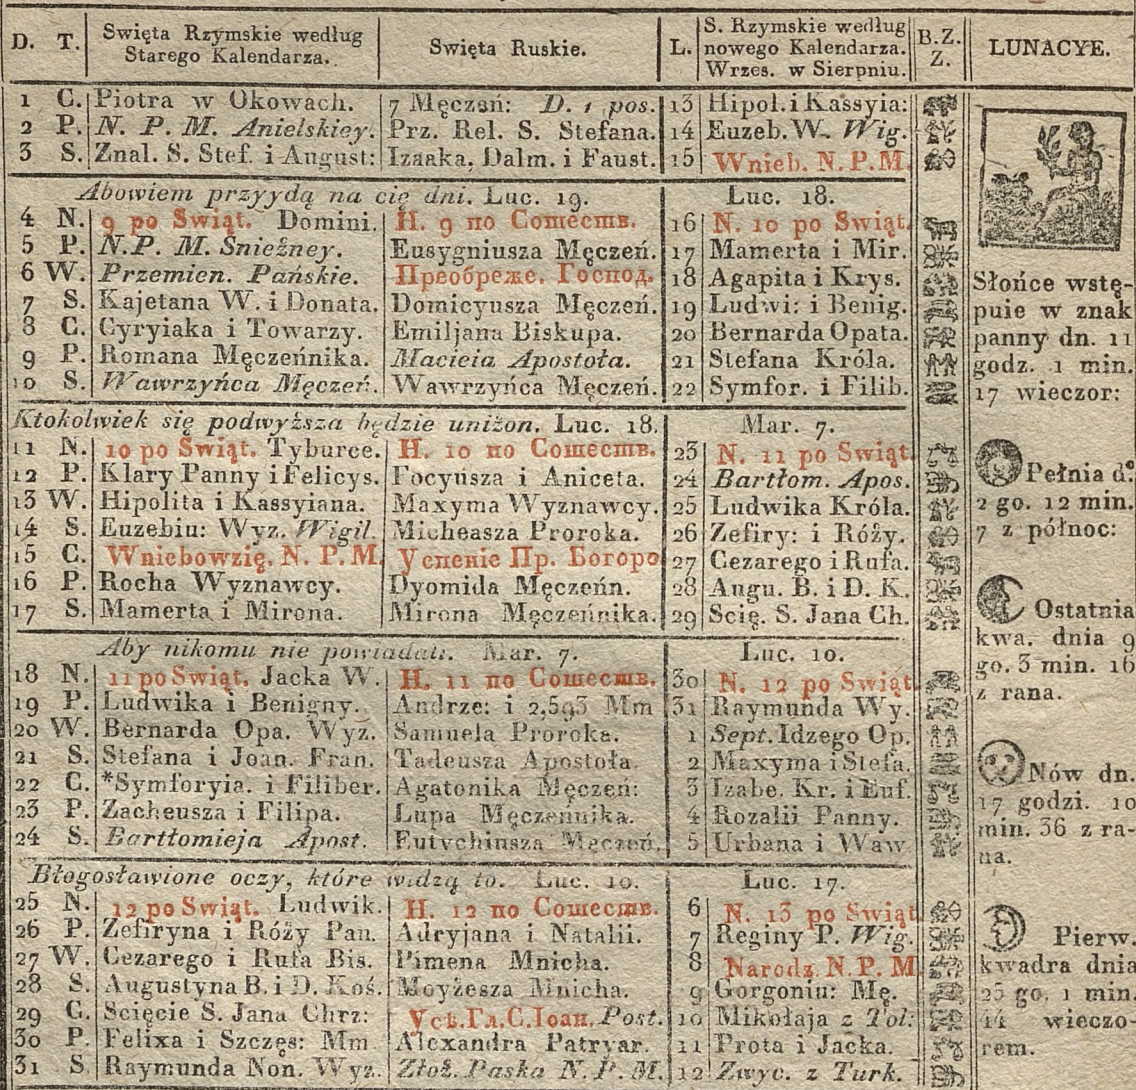 D. T. Swięta Rzymskie według Starego Kalendarza. Swięta Ruskie. L. S. Rzymskie według nowego Kalendarza. Wrzes. w Sierpniu. B.Z. Z. LUNACYE.
1 C. Piotra w Okowach. 7 Męczeń: D. 1 pos. 13 Hipol. i Kassyia:
2 P. N. P. M. Anielskiey. Prz. Rel. S. Stefana. 14 Euzeb. W. Wig.
3 S. Znal. S. Stef. i August: Izaaka, Dalm. i Faust. 15 Wnieb. N. P. M.
Abowiem przyydą na cię dni. Luc. 19. Luc. 18.
4 N. 9 po Swiąt. Domini. Н. 9 по Сошеств. 16 N. 10 po Swiąt.
5 P. N.P. M. Snieżney. Eusygniusza Męczeń. 17 Mamerta i Mir.
6 W. Przemien. Pańskie. Преображе. Господ. 18 Agapita i Krys.
7 S. Kajetana W. i Donata. Domicyusza Męczeń. 19 Ludwi: i Benig.
8 C. Cyryiaka i Towarzy. Emiljana Biskupa. 20 Bernarda Opata.
9 P. Romana Męczeńnika. Macieia Apostoła. 21 Stefana Króla.
10 S. Wawrzyńca Męczeń. Wawrzyńca Męczeń. 22 Symfor. i Filib.
Ktokolwiek się podwyższa będzie uniżon. Luc. 18. Mar. 7.
11 N. 10 po Swiąt. Tyburce. Н. 10 по Сошеств. 23 N. 11 po Swiąt.
12 P. Klary Panny i Felicys. Focyusza i Aniceta. 24 Bartłom. Apos.
13 W. Hipolita i Kassyiana. Maxyma Wyznawcy. 25 Ludwika Króla.
14 S. Euzebiu: Wyz. Wigil. Micheasza Proroka. 26 Zefiry: i Róży.
15 C. Wniebowzię. N. P. M. Успеніе Пр. Богоро 27 Cezarego i Rufa.
16 P. Rocha Wyznawcy. Dyomida Męczeńn. 28 Augu. B. i D. K.
17 S. Mamerta i Mirona. Mirona Męczeńnika. 29 Scię. S. Jana Ch.
Aby nikomu nie powiadali. Mar. 7. Luc. 10.
18 N. 11 po Swiąt. Jacka W. Н. 11 по Сошеств. 30 N. 12 po Swiąt.
19 P. Ludwika i Benigny. Andrze: i 2,593 Mm 31 Raymunda Wy.
20 W. Bernarda Opa. Wyz. Samuela Proroka. 1 Sept. Idzego Op.
21 S. Stefana i Joan. Fran. Tadeusza Apostoła. 2 Maxyma i Stefa.
22 C. *Symforyia. i Filiber. Agatonika Męczeń: 3 Izabe. Kr. i Euf.
23 P. Zacheusza i Filipa. Lupa Męczeńnika. 4 Rozalii Panny.
24 S. Bartłomieja Apost. Eutychiusza Męczeń. 5 Urbana i Waw
Błogosławione oczy, które widzą to. Luc. 10. Luc. 17.
25 N. 12 po Swiąt. Ludwik. Н. 12 по Сошеств. 6 N. 13 po Swiąt
26 P. Zefiryna i Róży Pan. Adryjana i Natalii. 7 Reginy P. Wig.
27 W. Cezarego i Rufa Bis. Pimena Mnicha. 8 Narodz. N. P. M
28 S. Augustyna B. i D. Koś. Moyżesza Mnicha. 9 Gorgoniu: Mę.
29 C. Scięcie S. Jana Chrz: Усѣ.Гл.С.Іоан. Post. 10 Mikołaja z Tol:
30 P. Felixa i Szczęs: Mm Alexandra Patryar. 11 Prota i Jacka.
31 S. Raymunda Non. Wyz. Złoż. Paska N. P. M. 12 Zwyc. z Turk.
Słońce wstę-
puie w znak
panny dn. 11
godz. 1 min.
17 wieczor:
Pełnia d.
2 go. 12 min.
7 z północ:
Ostatnia
kwa. dnia 9
go. 3 min. 16
z rana.
Nów dn.
17 godzi. 10
min. 36 z ra-
na.
Pierw.
kwadra dnia
25 go. 1 min.
44 wieczo-
rem.